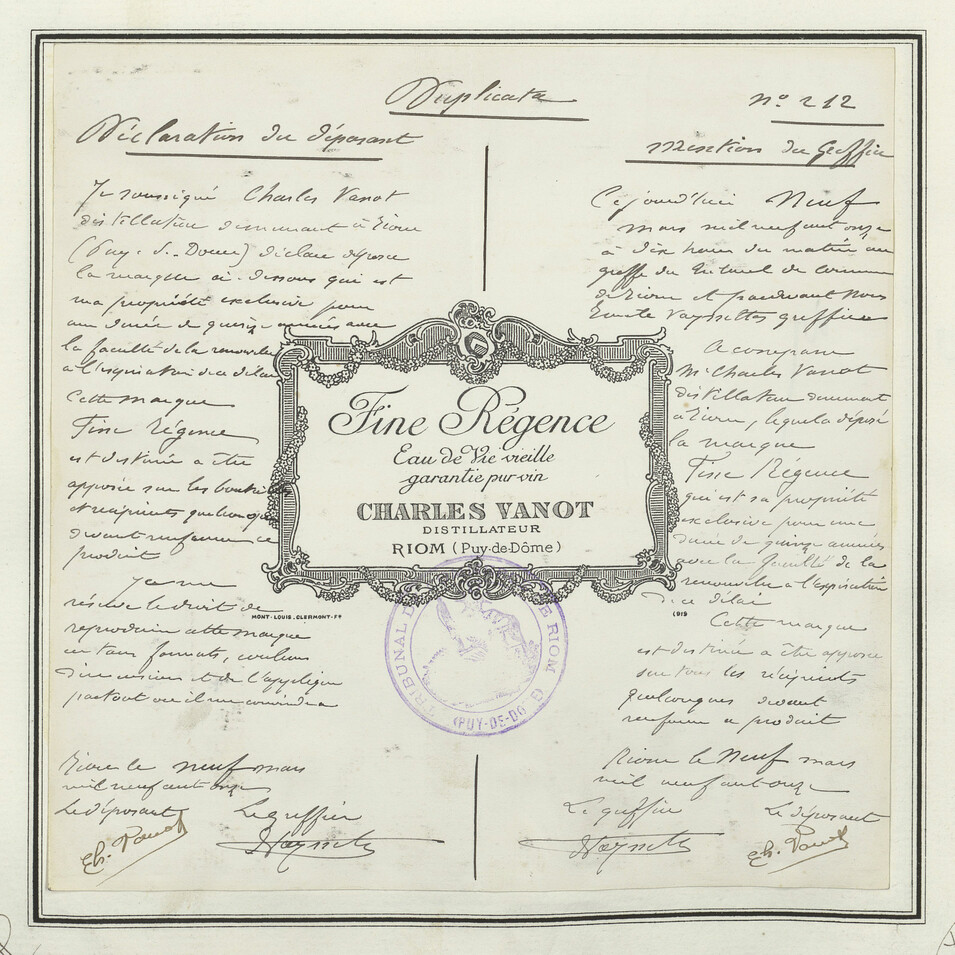 Duplicata
nº 212
Déclaration du déposant
Je soussigné Charles Vanot
distillateur demeurant à Riom
(Puy-d-Dome) déclare déposer
la marque ci-dessous qui est
ma propriété exclusive pour
une durée de quinze années avec
la faculté de la renouveler
à l'expiration de ce délai
Cette marque
Fine Régence
est destinée a être
apposée sur les bouteilles
et récipients quelconques
devant renfermer ce
produit
Je me
réserve le droit de
reproduire cette marque
en tous formats, couleurs
dimensions et de l'appliquer
partout où il me conviendra
Riom le neuf mars
mil neuf cent onze
Le déposant Le greffier
Ch. Vanot Vayssette
Fine Régence
Eau de Vie vieille
garantie pur vin
CHARLES VANOT
DISTILLATEUR
RIOM (Puy-de-Dôme)
MONT-LOUIS-CLERMONT-Fd
TRIBUNAL DE RIOM
(PUY-DE-DOME)
Mention du Greffier
Ce jourd'hui Neuf
mars mil neuf cent onze
à dix heures du matin au
greffe du tribunal de commerce
de Riom et pardevant nous
Vayssettes greffier
A comparu
Mr Charles Vanot
distillateur demeurant
à Riom, lequel a déposé
la marque
Fine Régence
qui est sa propriété
exclusive pour une
durée de quinze années
avec la faculté de la
renouveler a l'expiration
de ce délai
Cette marque
est destinée a être apposée
sur tous les récipients
quelconques devant
renfermer ce produit
Riom le Neuf mars
mil neuf cent onze
Le greffier Le déposant
Vayssette Ch. Vanot